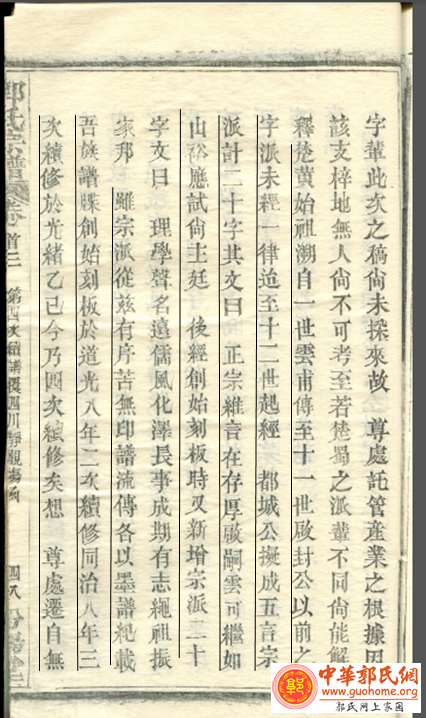 字輩此次之稿尚未採來故　尊處託管産業之根據因
該支梓地無人尙不可考至若楚蜀之派輩不同尙能解
釋楚黃始祖溯自一世雲甫傳至十一世啟封公以前之
字派未經一律迨至十二世起經　都城公擬成五言宗
派計二十字其文曰　正宗維音在存厚啟嗣雲可繼如
山裕應試尙主廷　後經創始刻板時又新增宗派二十
字文曰　理學聲名遠儒風化澤長事成期有志繩祖振
家邦　雖宗派從茲有序苦無印譜流傳各以墨譜紀載
吾族譜牒創始刻板於道光八年二次續修同治八年三
次續修於光緒乙巳今乃四次續修矣想　尊處遷自無
郭氏宗譜
卷首二
第四次續譜覆四川靜觀場函
四八
中華郭氏網
www.guohome.org
郭氏网上家園